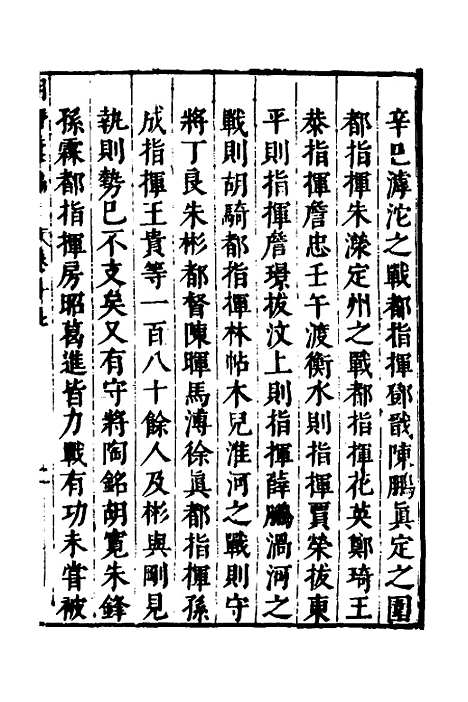 辛巳滹沱之戰都指揮鄧戩陳鵬眞定之圍
都指揮朱濚定州之戰都指揮花英鄭琦王
㳟指揮詹忠壬午渡衡水則指揮賈榮拔東
平則指揮詹璟拔汶上則指揮薛鵬渦河之
戰則胡騎都指揮林帖木兒淮河之戰則守
將丁良朱彬都督陳暉馬溥徐眞都指揮孫
成指揮王貴等一百八十餘人及彬與剛見
執則勢已不支矣又有守將陶銘胡寛朱鋒
孫霖都指揮房昭葛進皆力戰有功未嘗被